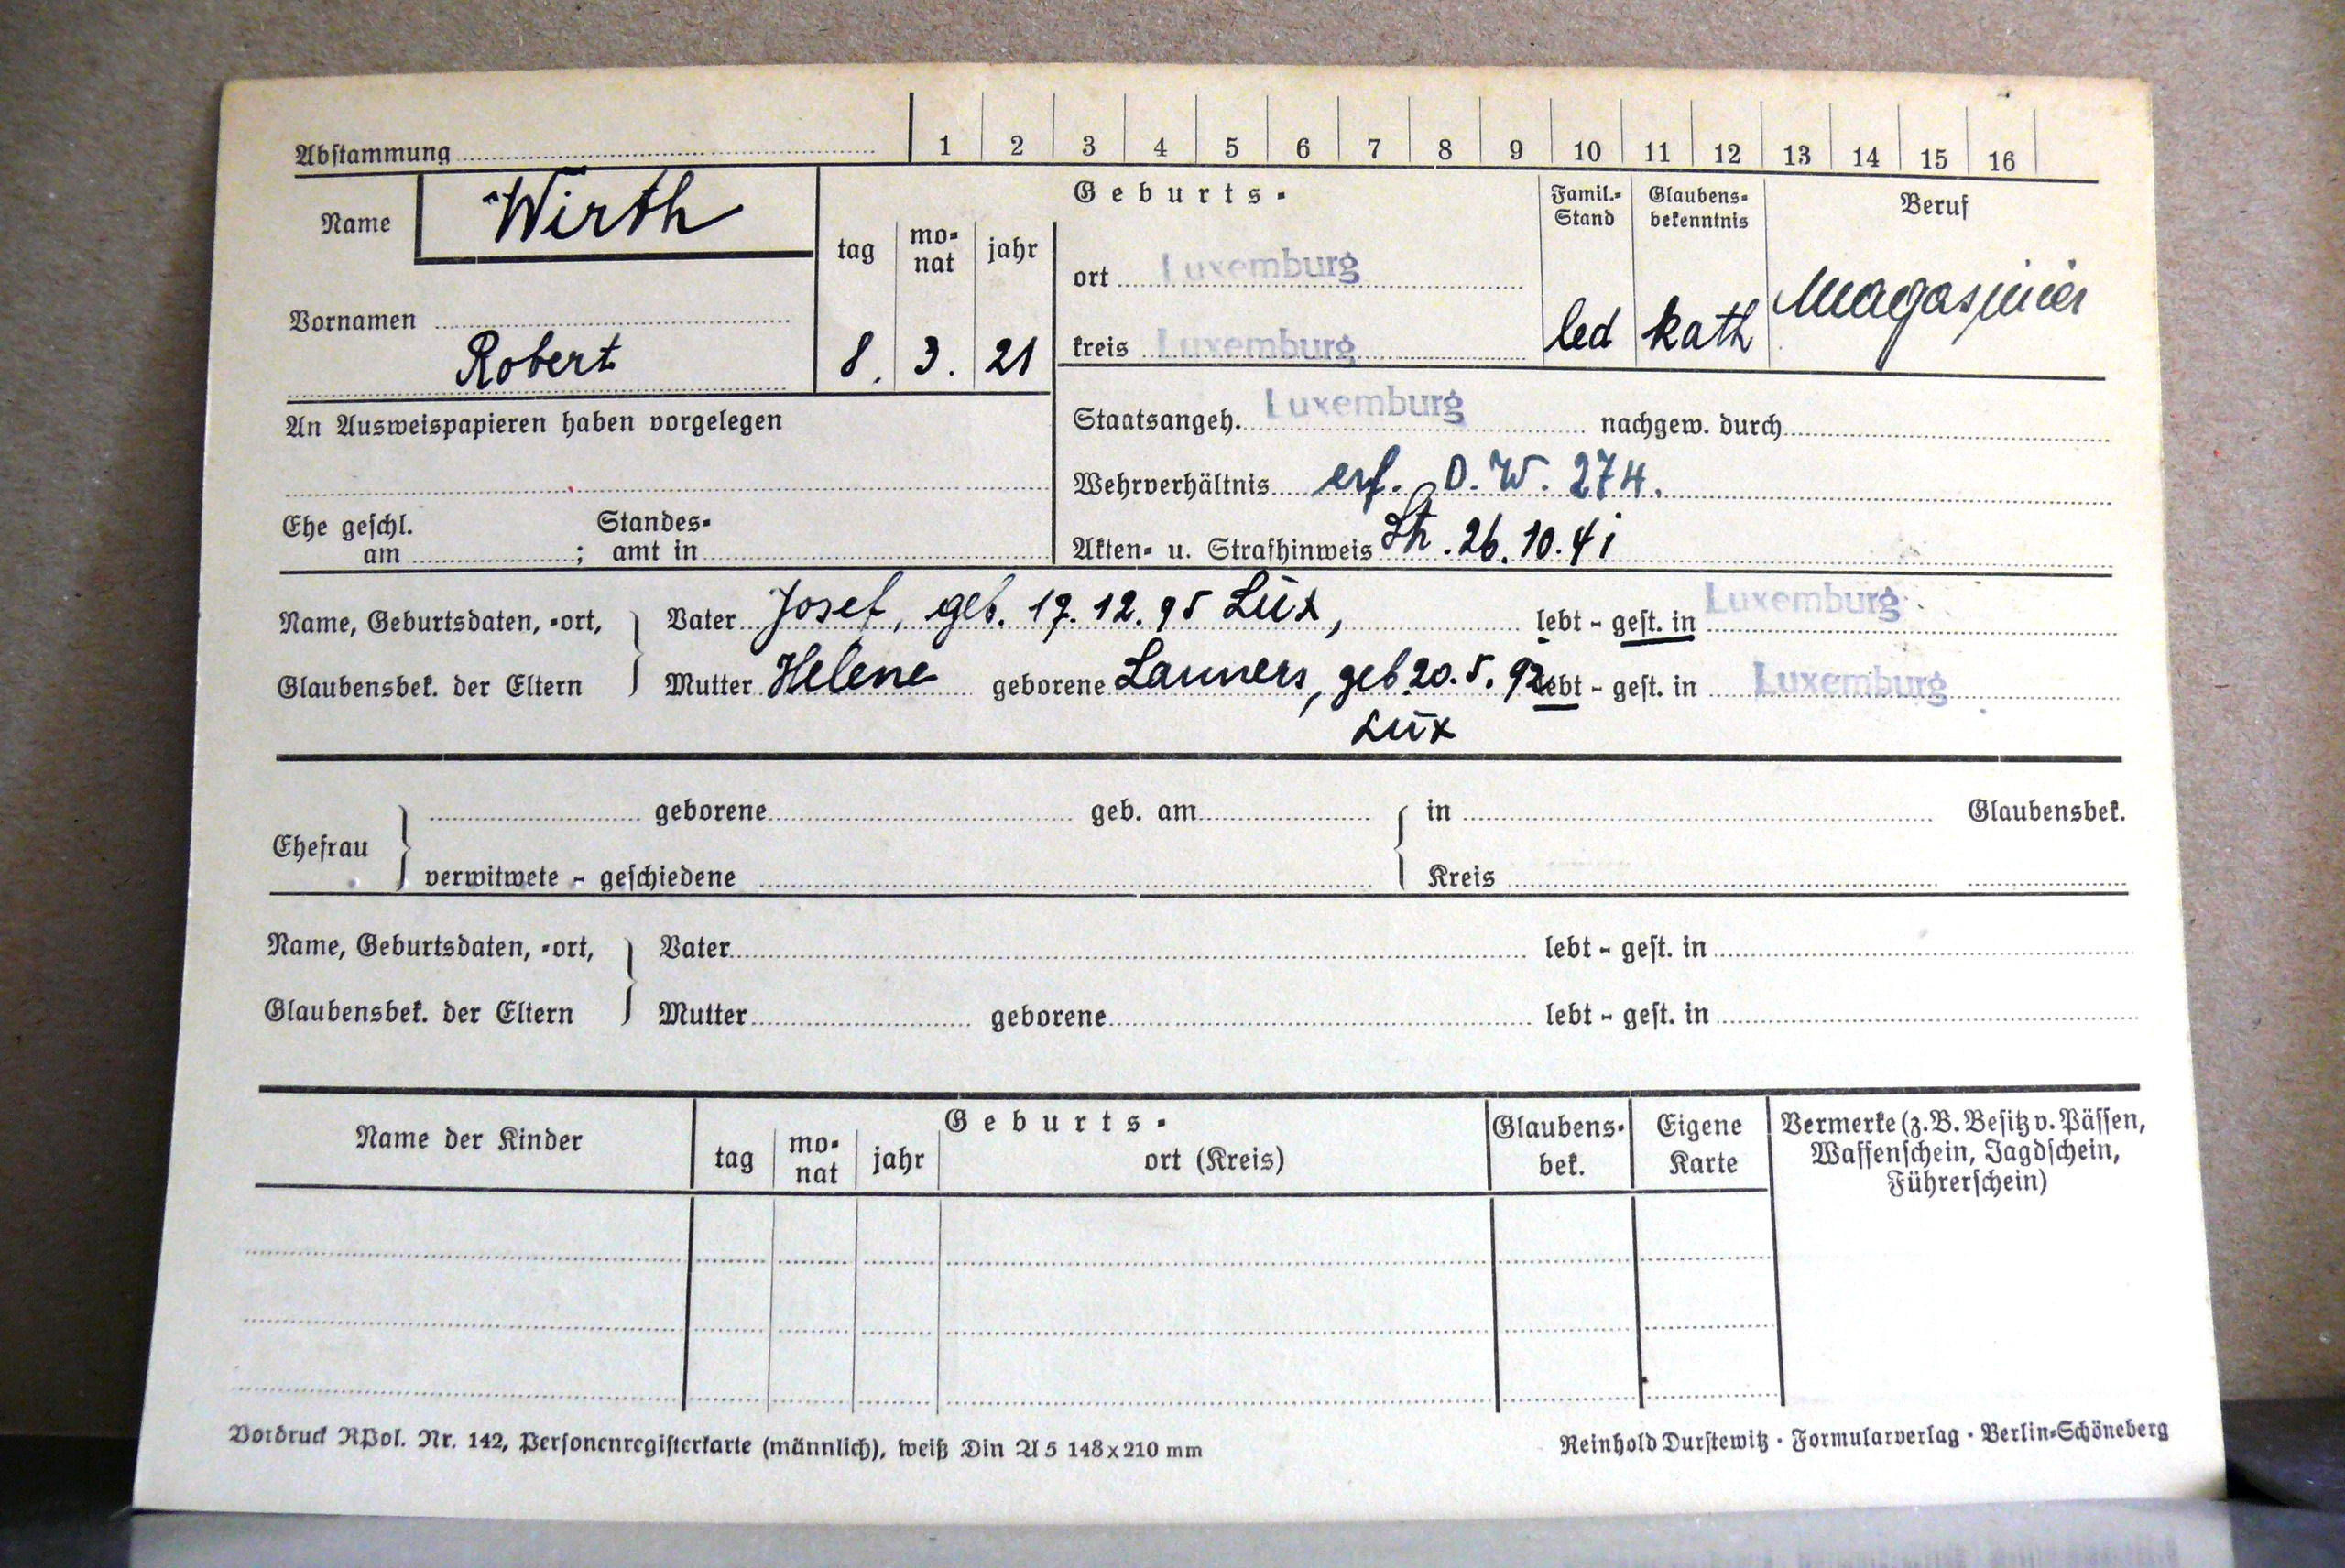 Abstammung 1 2 3 4 5 6 7 8 9 10 11 12 13 14 15 16
Name Wirth
Geburts-
Famil.-Stand
Glaubens-bekenntnis
Beruf
tag monat jahr
ort Luxemburg
Vornamen
Robert 8. 3. 21
kreis Luxemburg
led kath Magasinier
An Ausweispapieren haben vorgelegen
Staatsangeh. Luxemburg nachgew. durch
Wehrverhältnis erf. D. W. 274.
Ehe geschl. am ; Standes-amt in
Akten- u. Strafhinweis 26.10.41
Name, Geburtsdaten, -ort, Vater Josef, geb. 17.12.95 Lux, lebt - gest. in Luxemburg
Glaubensbek. der Eltern Mutter Helene geborene Launers, geb. 20.5.92 lebt - gest. in Luxemburg
Lux
Ehefrau geborene geb. am in Glaubensbek.
verwitwete - geschiedene Kreis
Name, Geburtsdaten, -ort, Vater lebt - gest. in
Glaubensbek. der Eltern Mutter geborene lebt - gest. in
Name der Kinder
Geburts-
tag monat jahr ort (Kreis)
Glaubens-bek.
Eigene Karte
Vermerke (z. B. Besitz v. Pässen,
Waffenschein, Jagdschein,
Führerschein)
Vordruck RPol. Nr. 142, Personenregisterkarte (männlich), weiß Din A 5 148x210 mm
Reinhold Durstewitz · Formularverlag · Berlin-Schöneberg